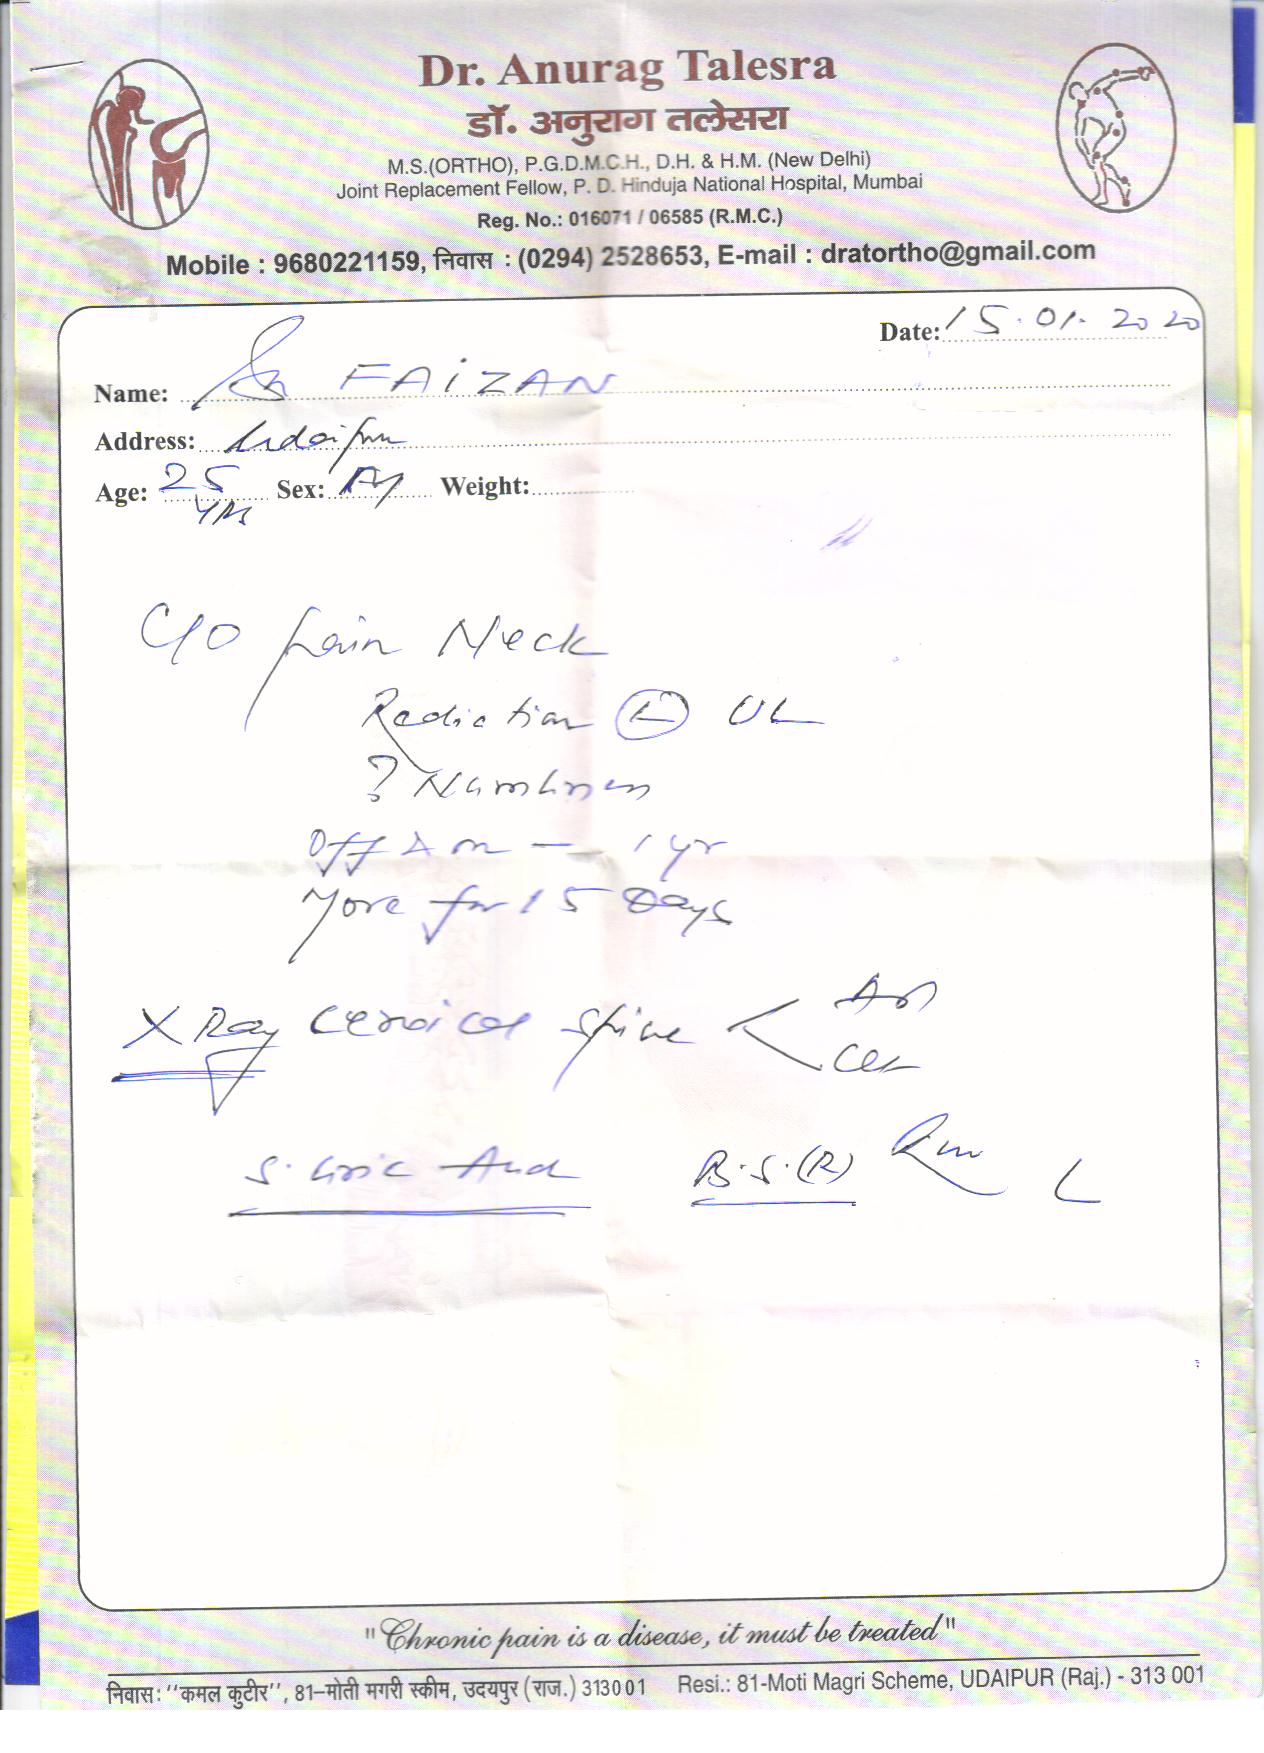 Dr. Anurag Talesra
डॉ. अनुराग तलेसरा
M.S.(ORTHO), P.G.D.M.C.H., D.H. & H.M. (New Delhi)
Joint Replacement Fellow, P. D. Hinduja National Hospital, Mumbai
Reg. No.: 016071 / 06585 (R.M.C.)
Mobile : 9680221159, निवास : (0294) 2528653, E-mail : dratortho@gmail.com
Date: 15.01.2020
Name: FAIZAN
Address: Udaipur
Age: 25 yrs Sex: M Weight:
C/O Pain Neck
Radiation (L) UL
? Numbness
Off & on — 1 yr
More for 15 Days
X Ray cervical spine < AP
S. Uric Acid B.S.(R)
"Chronic pain is a disease, it must be treated"
निवास: ''कमल कुटीर'', 81–मोती मगरी स्कीम, उदयपुर (राज.) 313001 Resi.: 81-Moti Magri Scheme, UDAIPUR (Raj.) - 313 001